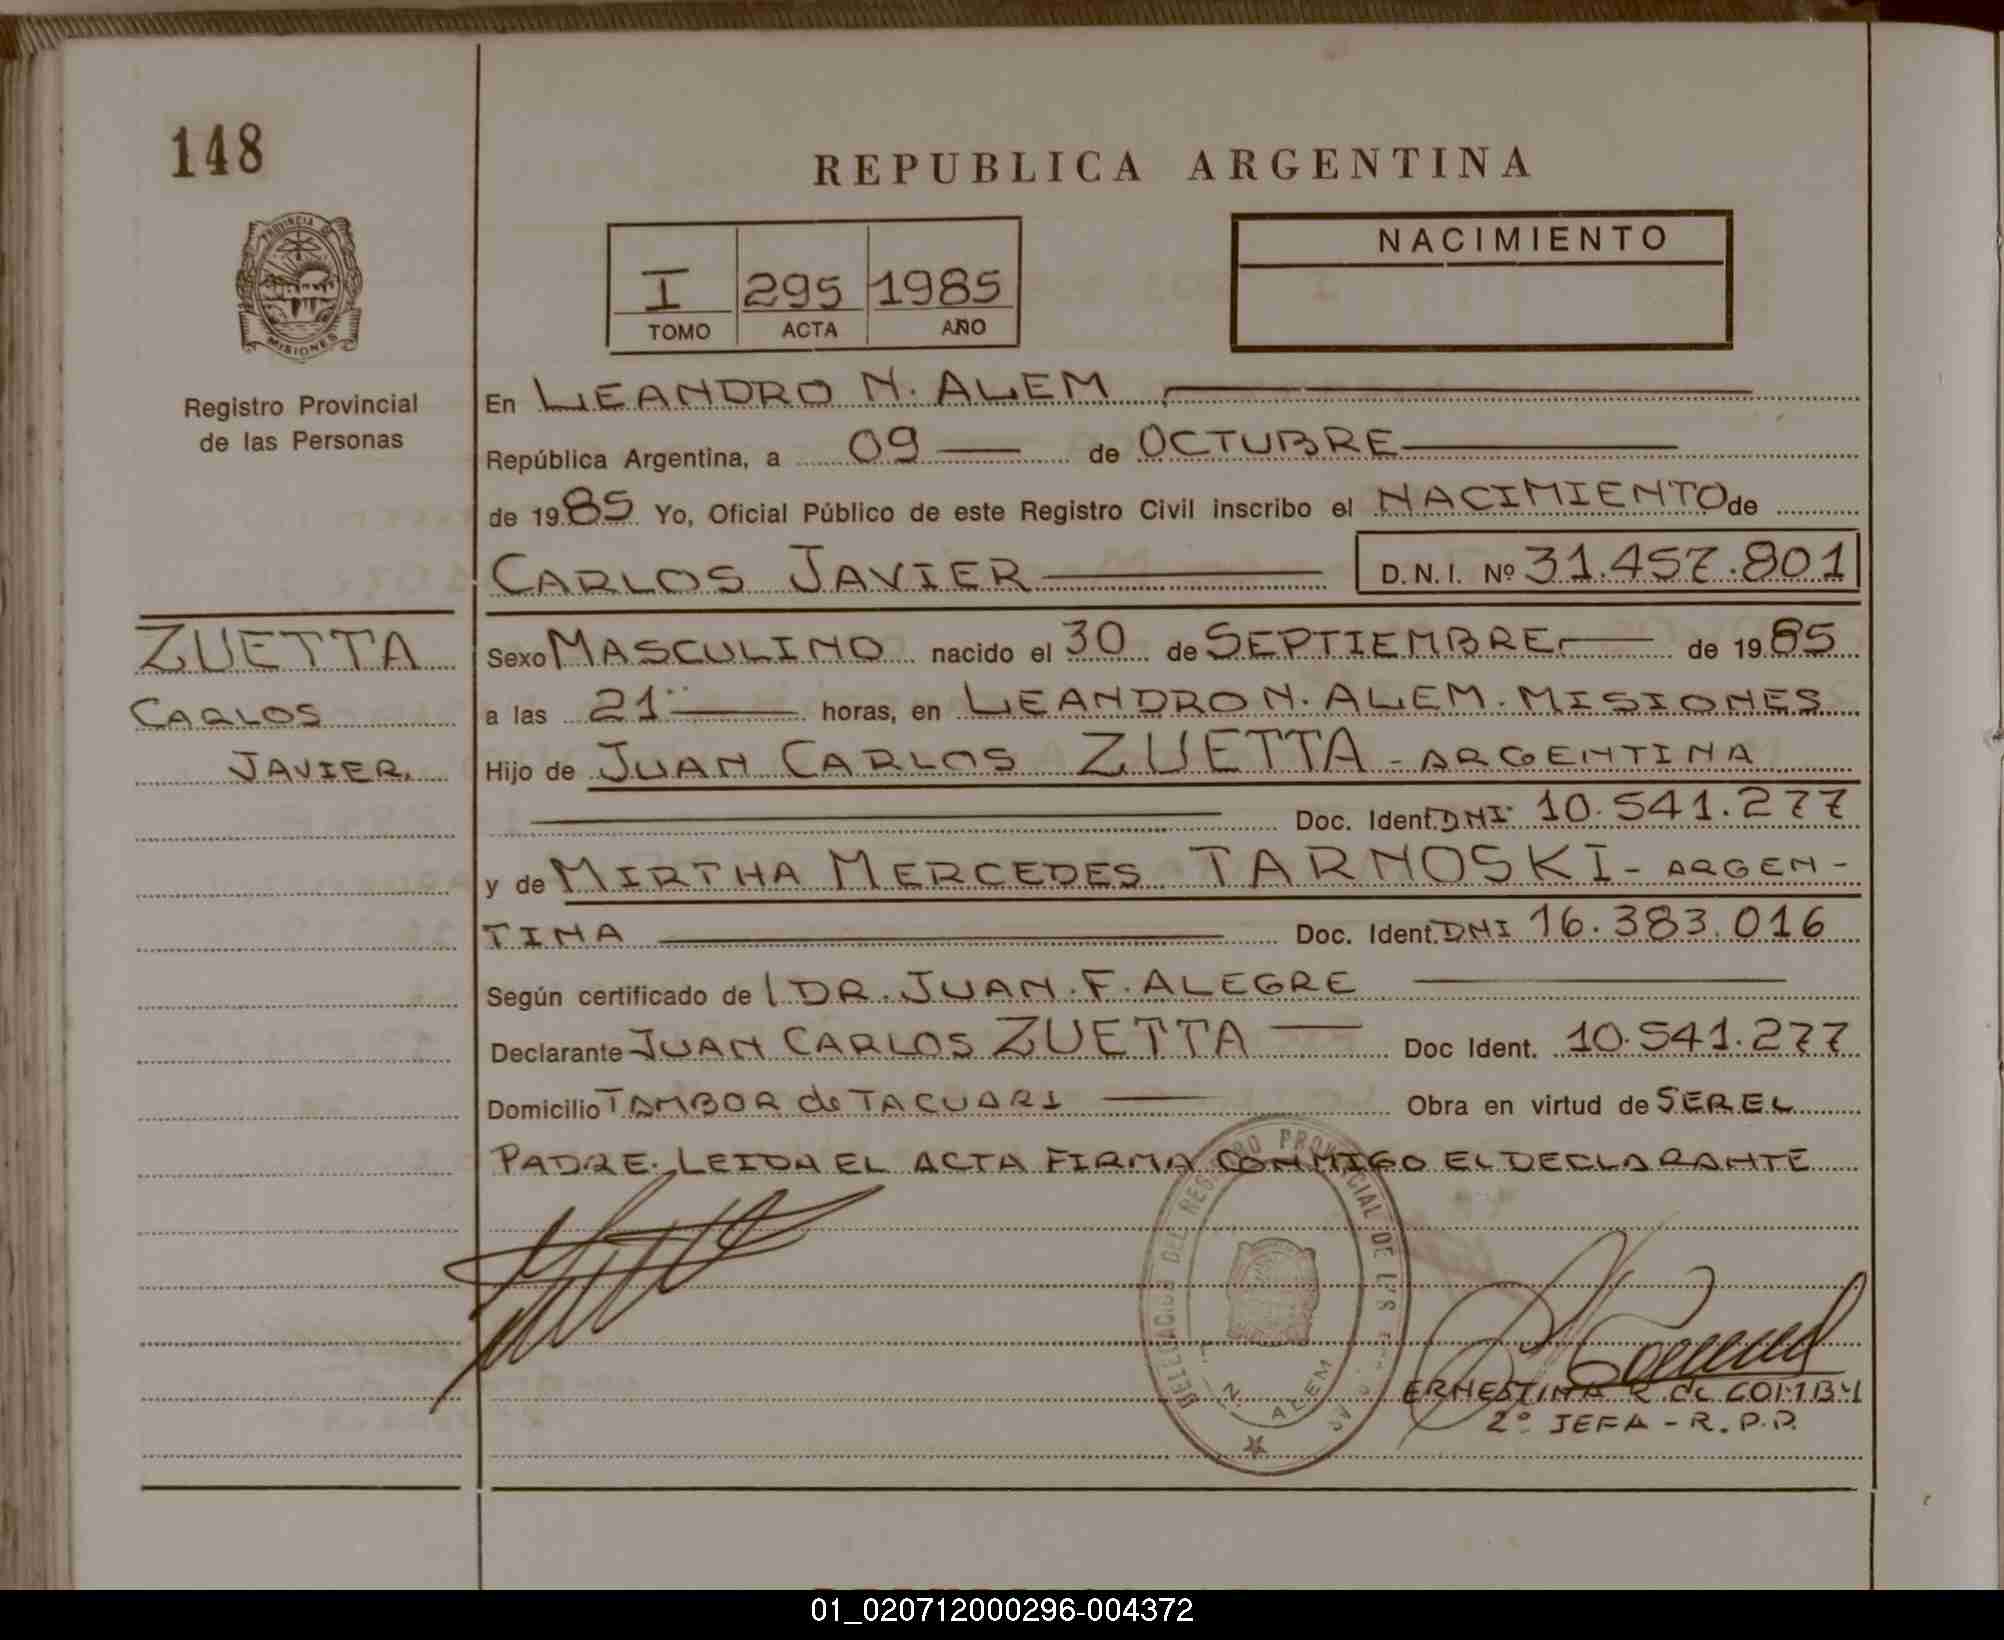 148
REPUBLICA ARGENTINA
PROVINCIA DE
MISIONES
Registro Provincial
de las Personas
I 295 1985
TOMO ACTA AÑO
NACIMIENTO
En LEANDRO N. ALEM
República Argentina, a 09 de OCTUBRE
de 1985 Yo, Oficial Público de este Registro Civil inscribo el NACIMIENTO de
CARLOS JAVIER D.N.I. Nº 31.457.801
ZUETTA
CARLOS
JAVIER.
Sexo MASCULINO nacido el 30 de SEPTIEMBRE de 1985
a las 21 horas, en LEANDRO N. ALEM. MISIONES
Hijo de JUAN CARLOS ZUETTA - ARGENTINA
Doc. Ident. DNI 10.541.277
y de MIRTHA MERCEDES TARNOSKI - ARGEN-
TINA Doc. Ident. DNI 16.383.016
Según certificado de DR. JUAN. F. ALEGRE
Declarante JUAN CARLOS ZUETTA Doc Ident. 10.541.277
Domicilio TAMBOR de TACUARI Obra en virtud de SER EL
PADRE. LEIDA EL ACTA FIRMA CONMIGO EL DECLARANTE
REGISTRO PROVINCIAL DE
N. ALEM
ERNESTINA R. de
2º JEFA - R.P.P.
01_020712000296-004372